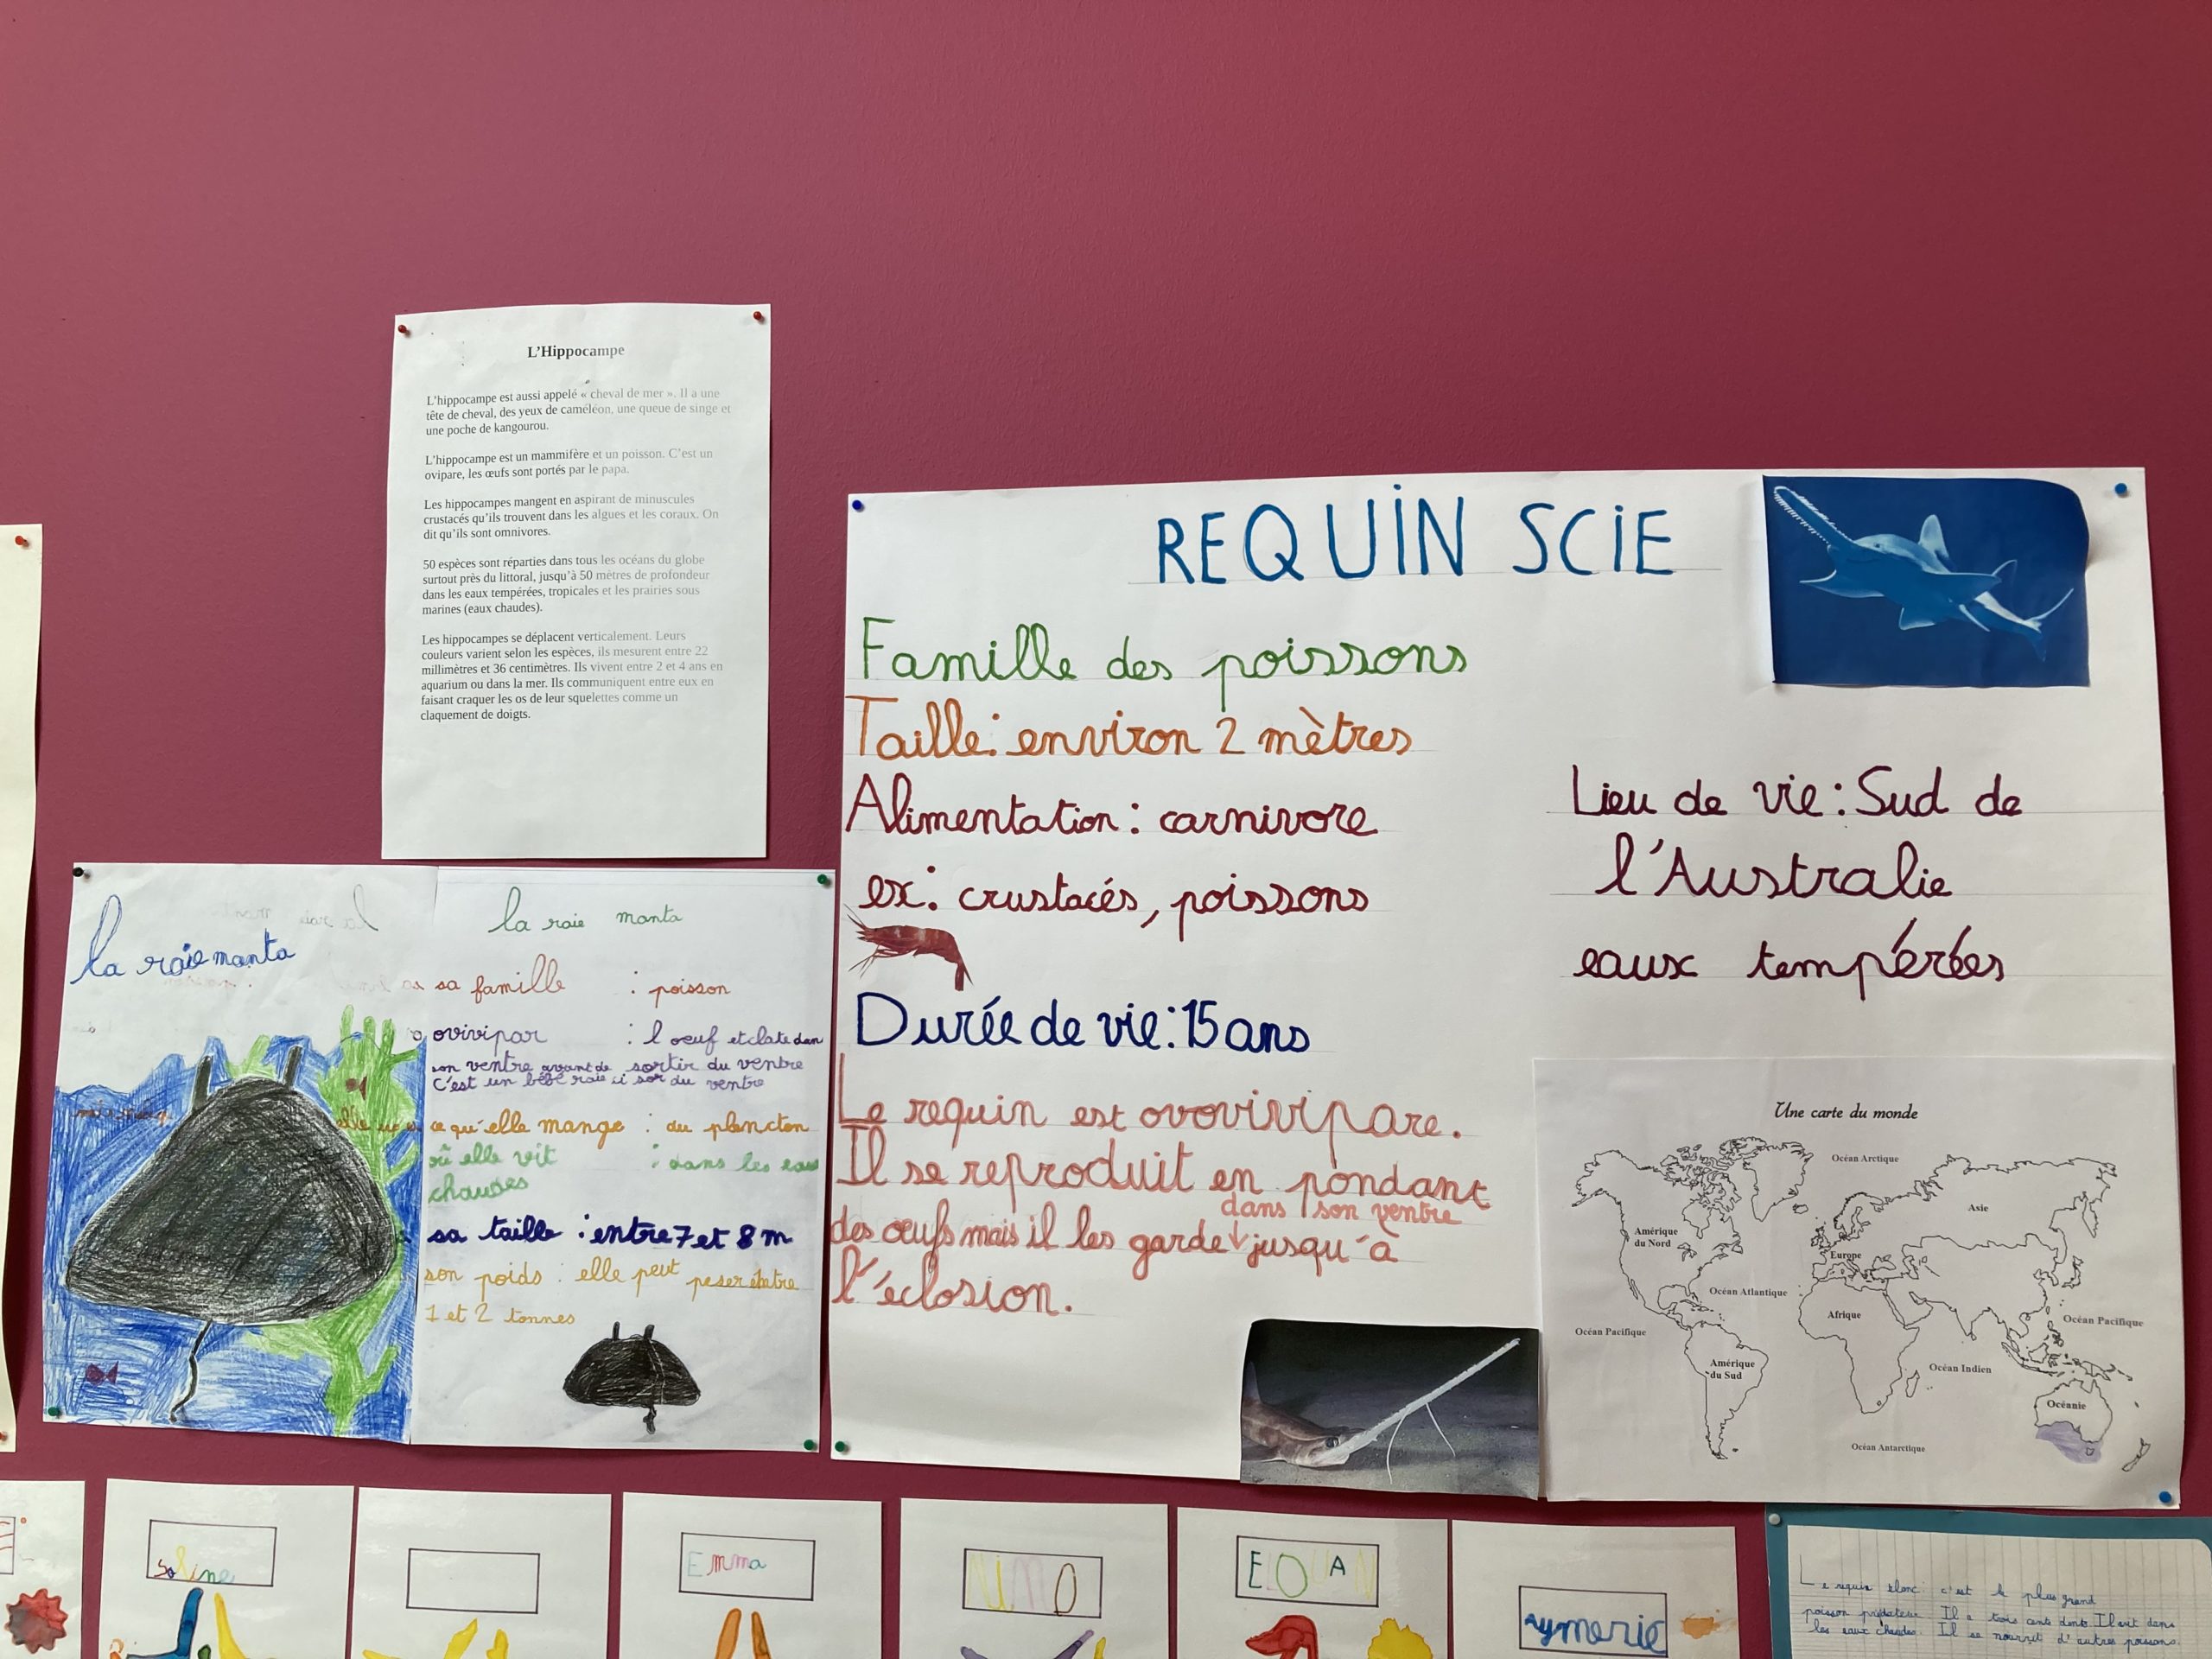 L'Hippocampe
L'hippocampe est aussi appelé « cheval de mer ». Il a une
tête de cheval, des yeux de caméléon, une queue de singe et
une poche de kangourou.
L'hippocampe est un mammifère et un poisson. C'est un
ovipare, les œufs sont portés par le papa.
Les hippocampes mangent en aspirant de minuscules
crustacés qu'ils trouvent dans les algues et les coraux. On
dit qu'ils sont omnivores.
50 espèces sont réparties dans tous les océans du globe
surtout près du littoral, jusqu'à 50 mètres de profondeur
dans les eaux tempérées, tropicales et les prairies sous
marines (eaux chaudes).
Les hippocampes se déplacent verticalement. Leurs
couleurs varient selon les espèces, ils mesurent entre 22
millimètres et 36 centimètres. Ils vivent entre 2 et 4 ans en
aquarium ou dans la mer. Ils communiquent entre eux en
faisant craquer les os de leur squelettes comme un
claquement de doigts.
la raie manta
la raie manta
sa famille : poisson
ovivipar : l oeuf etclate dan
son ventre avant de sortir du ventre
C'est un bébé raie ci sor du ventre
ce qu'elle mange : du plancton
où elle vit : dans les eau
chaudes
sa taille : entre 7 et 8 m
son poids : elle peut peser
1 et 2 tonnes
REQUIN SCIE
Famille des poissons
Taille : environ 2 mètres
Alimentation : carnivore
ex : crustacés, poissons
Durée de vie : 15 ans
Le requin est ovovivipare.
Il se reproduit en pondant
dans son ventre
des œufs mais il les garde ↓ jusqu'à
l'éclosion.
Lieu de vie : Sud de
l'Australie
eaux tempérées
Une carte du monde
Océan Arctique
Amérique
du Nord
Asie
Europe
Océan Atlantique
Afrique
Océan Pacifique
Océan Pacifique
Amérique
du Sud
Océan Indien
Océanie
Océan Antarctique
Soline
Emma
NiMO
ELOUAN
Aymeric
Le requin blanc : c'est le plus grand
poisson prédateur. Il a trois cents dents. Il vit dans
les eaux chaudes. Il se nourrit d'autres poissons.